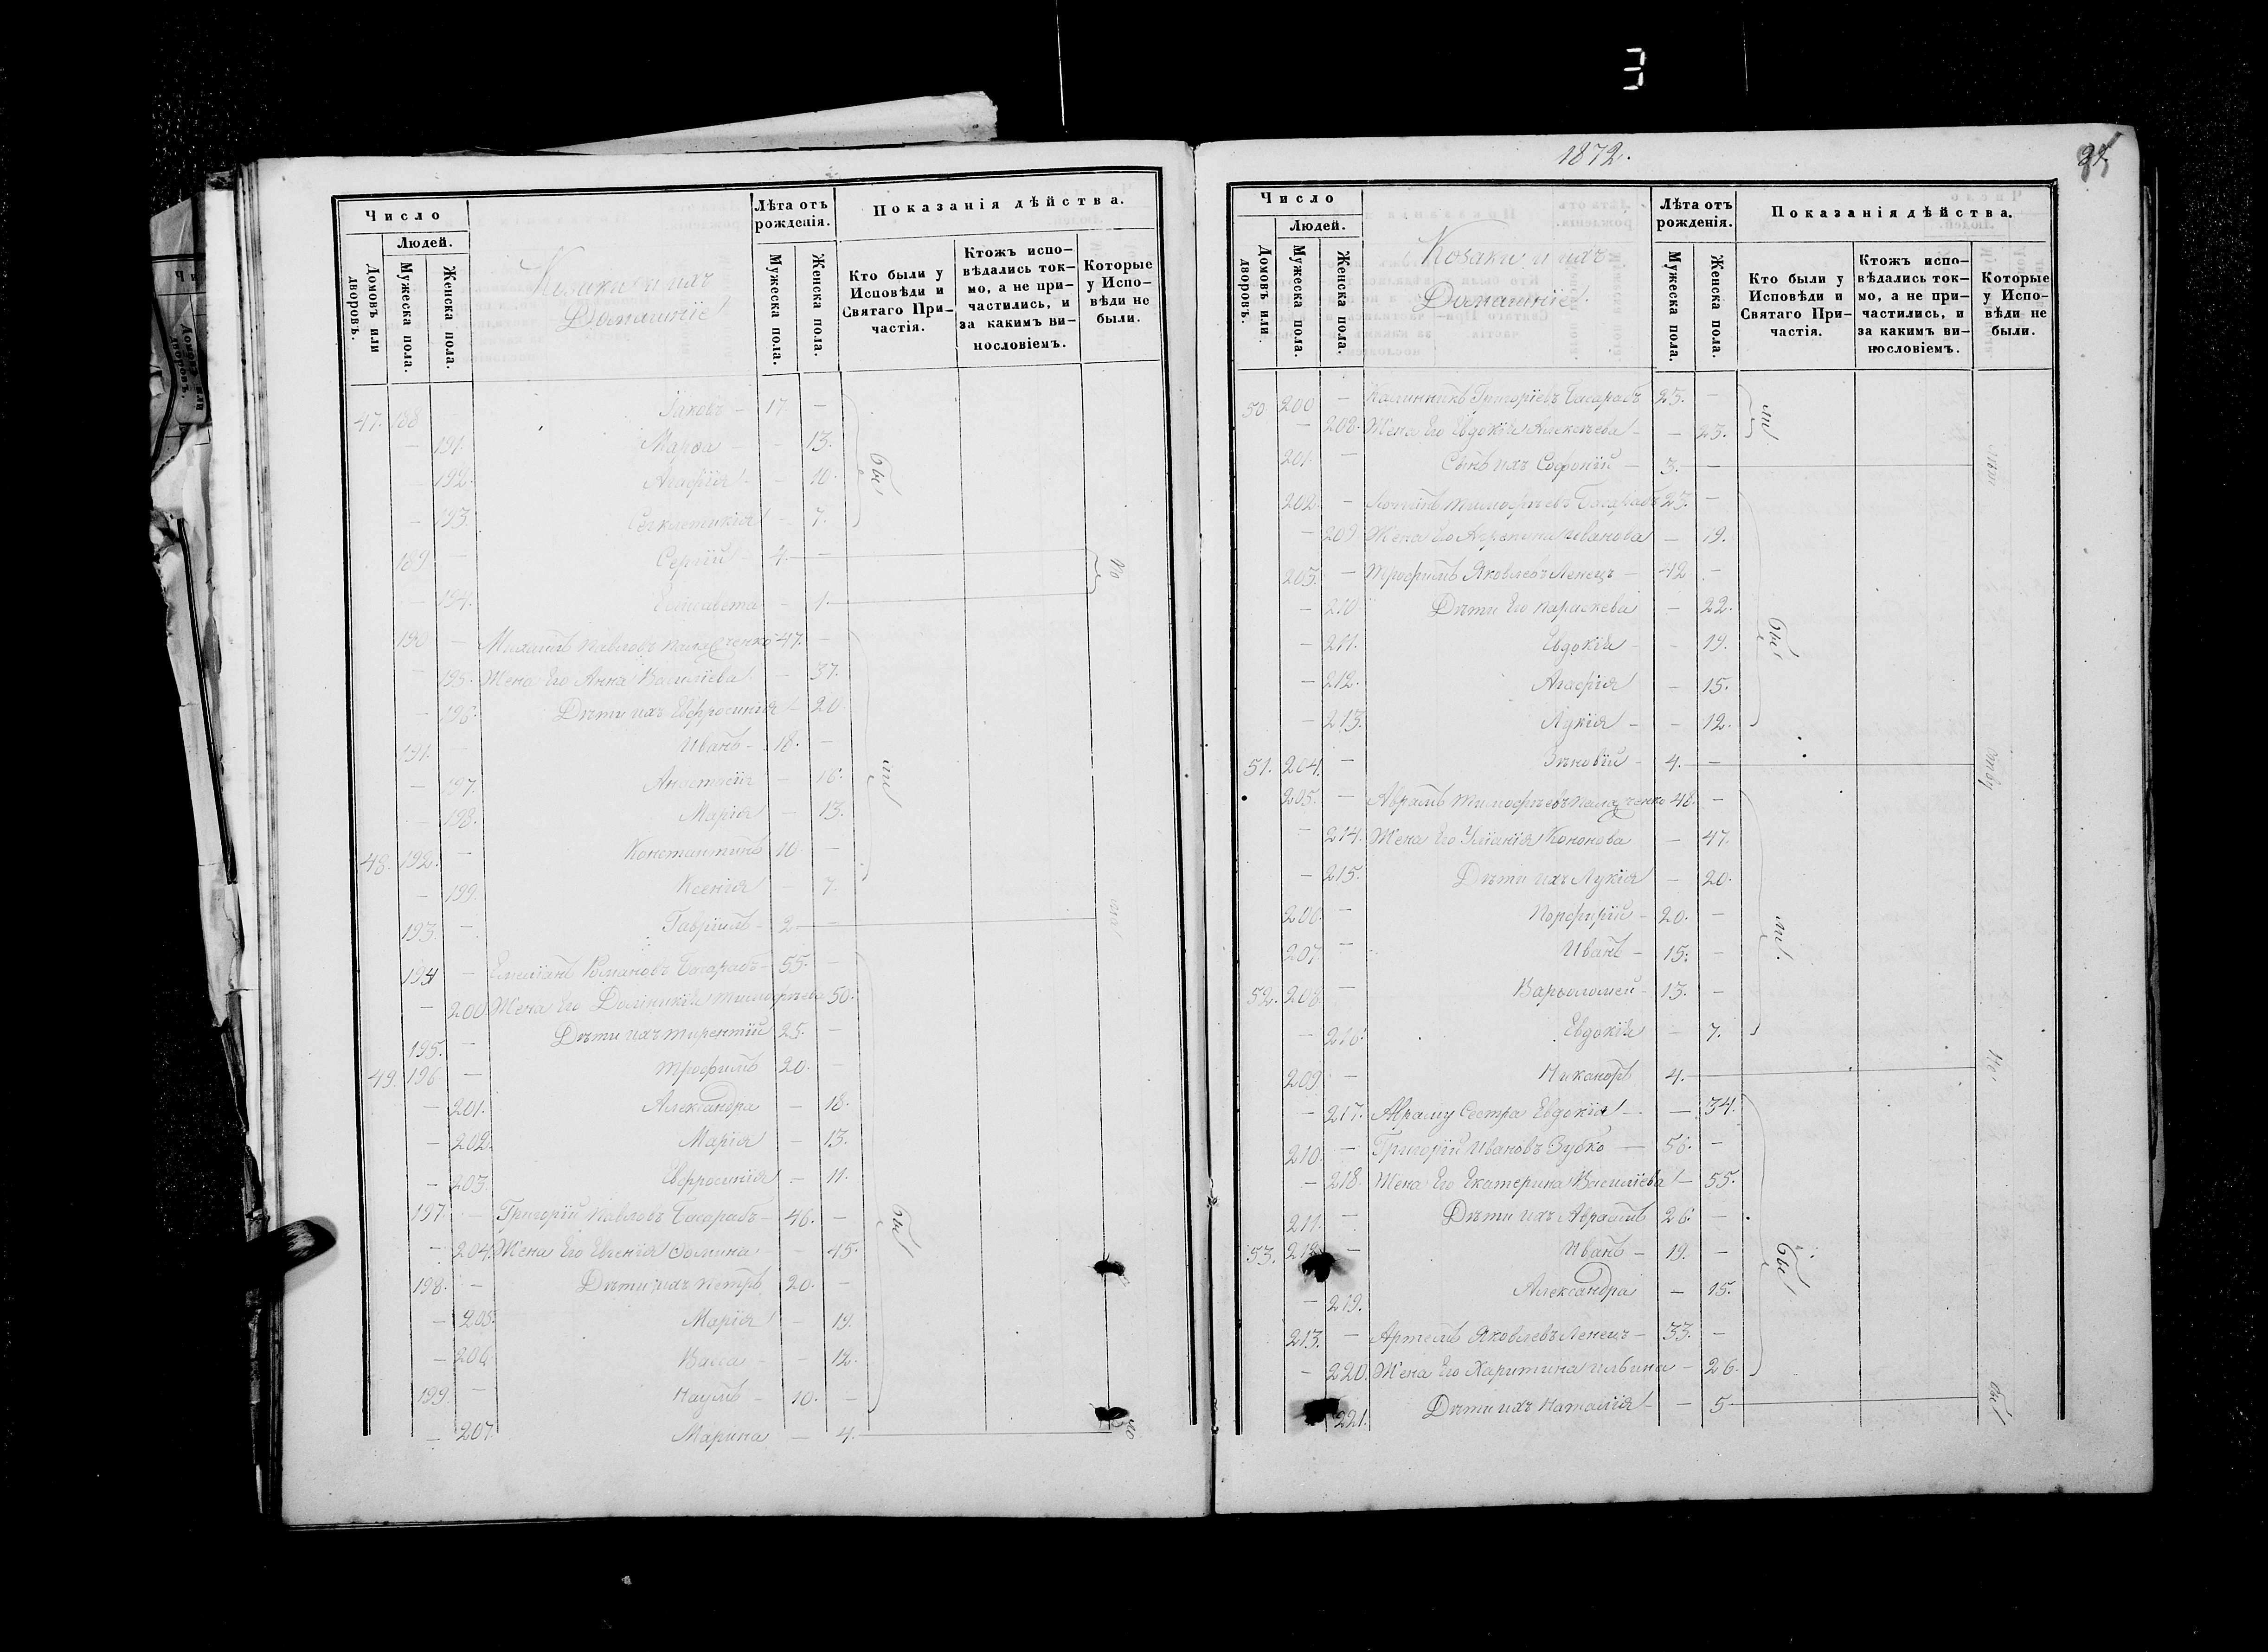 Число
Людей.
Домовъ или дворовъ.
Мужеска пола.
Женска пола.
Козаки и ихъ
Домашніе
Лѣта отъ рожденія.
Мужеска пола.
Женска пола.
Показанія дѣйства.
Кто были у Исповѣди и Святаго Причастія.
Ктожъ исповѣдались токмо, а не причастились, и за какимъ винословіемъ.
Которые у Исповѣди не были.
47. 188 Іаковъ - 17 -
- 191. Марѳа - 13.
- 192. Агафія - 10.
- 193. Секлетикія - 7.
189 - Сергій - 4. -
- 194. Елисавета - 1.
190 - Михаилъ Павловъ 47. -
- 195. Жена Его Анна Василіева - 37.
- 196. Дѣти ихъ Евфросинія - 20
191. - Иванъ - 18. -
- 197. Анастасія - 16.
- 198. Марія - 13.
48. 192. - Константинъ 10 -
- 199. Ксенія - 7.
193. - Гавріилъ - 2.
194 - Емеліанъ Романовъ Басарабъ - 55. -
- 200 Жена Его Домникія Тимофѣева 50.
195. - Дѣти ихъ Терентій 25. -
49. 196 - Трофимъ 20. -
- 201. Александра - 18.
- 202. Марія - 13.
- 203. Евфросинія - 11.
197. - Григорій Павловъ Басарабъ - 46. -
- 204. Жена Его Евгенія Фомина - 45.
198. - Дѣти ихъ Петръ 20. -
- 205. Марія - 19.
- 206. Васса - 12.
199. - Наумъ - 10. -
- 207. Марина - 4.
1872.
Число
Людей.
Домовъ или дворовъ.
Мужеска пола.
Женска пола.
Козаки и ихъ
Домашніе
Лѣта отъ рожденія.
Мужеска пола.
Женска пола.
Показанія дѣйства.
Кто были у Исповѣди и Святаго Причастія.
Ктожъ исповѣдались токмо, а не причастились, и за какимъ винословіемъ.
Которые у Исповѣди не были.
50 200 - Калинникъ Григоріевъ Басарабъ 25. -
- 208. Жена Его Евдокія Алексѣева - - 23.
201. - Сынъ ихъ Софоній - 3. -
202. - Тимофѣевъ Басарабъ 23. -
- 209 Жена Его Агрепина Иванова - 19.
203. - Трофимъ Яковлевъ Ленецъ - 42 -
- 210 Дѣти Его Параскева - 22.
- 211. Евдокія - - 19.
- 212. Агафія - 15.
- 213. Лукія - - 12.
51. 204. - Зѣновій - 4. -
205. - Аврамъ Тимофѣевъ 48. -
- 214. Жена Его Уліанія Кононова - 47.
- 215. Дѣти ихъ Лукія - 20.
206. - Порфирій - 20. -
207 - Иванъ - 15. -
52. 208. - Варѳоломей - 13. -
- 216. Евдокія - 7.
209. - Никаноръ 4.
- 217. Авраму Сестра Евдокія - - 34.
210. - Григорій Ивановъ Зубко - 56. -
- 218. Жена Его Екатерина Василіева - 55.
211. - Дѣти ихъ Авраамъ 26. -
53. 212 - Иванъ - 19. -
- 219. Александра - 15.
213. - Артемъ Яковлевъ Ленецъ - 33. -
- 220. Жена Его Харитина Ильина - 26.
221. Дѣти ихъ Наталія - - 5